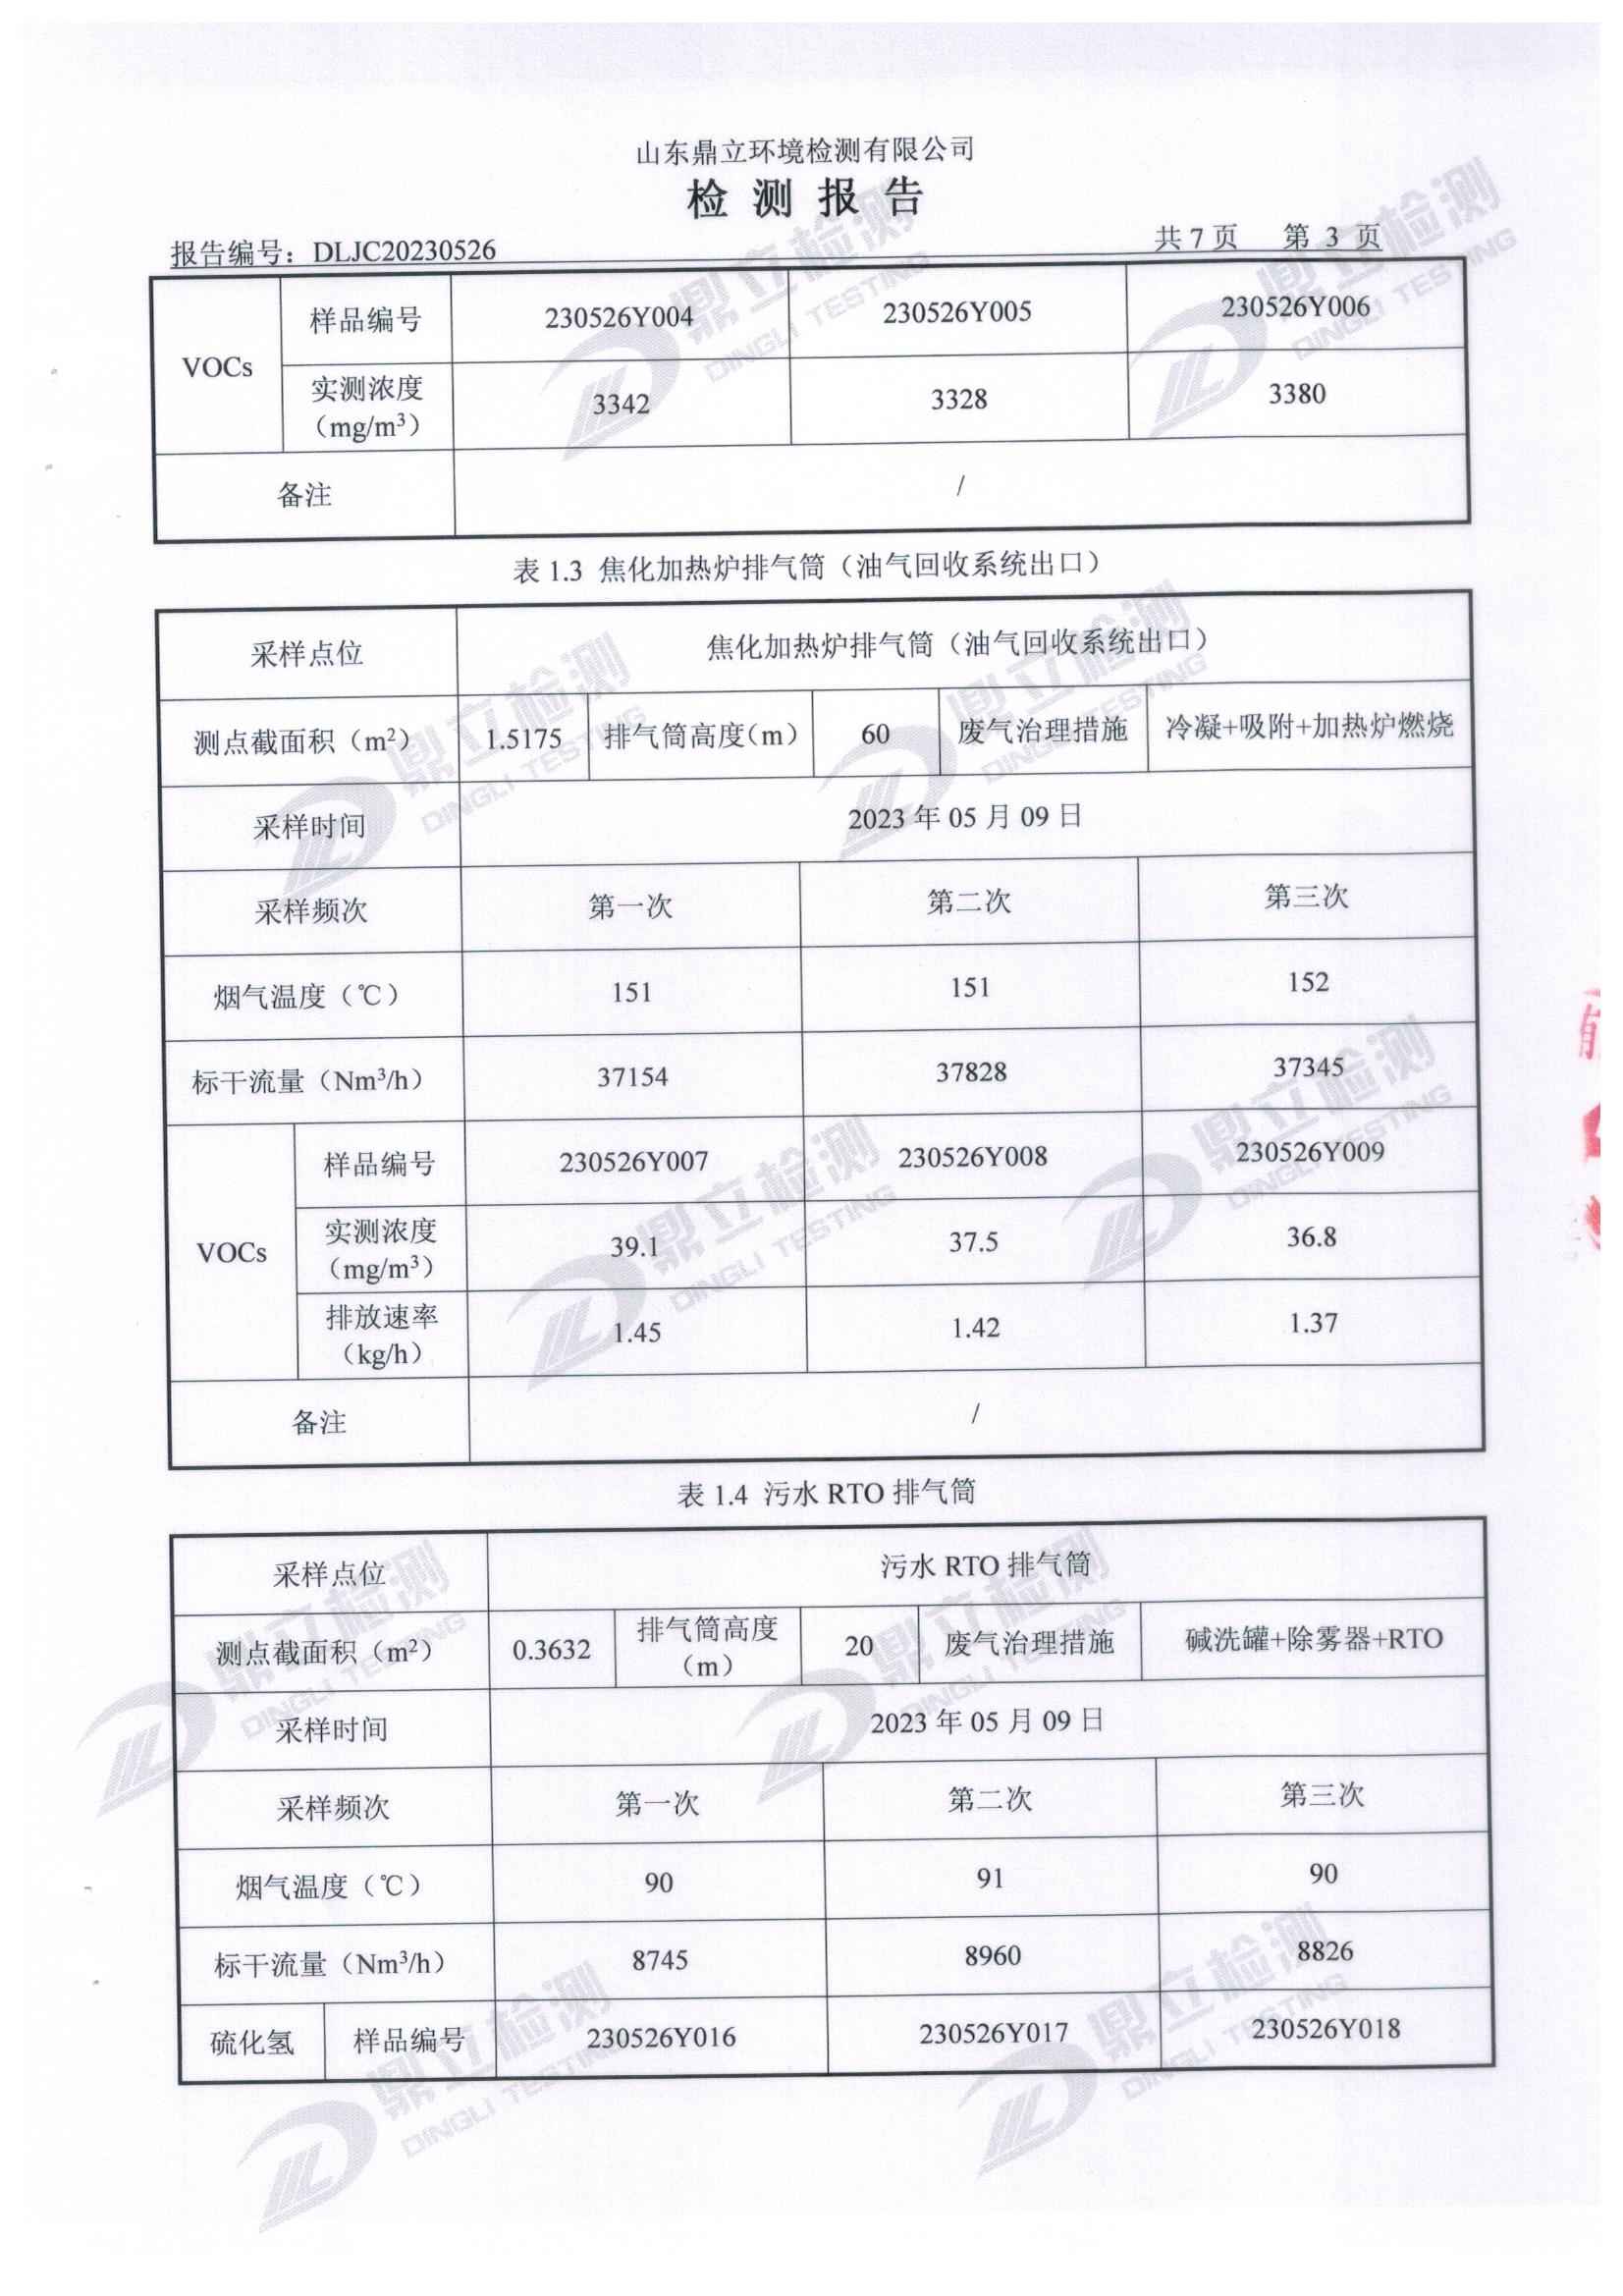 山东鼎立环境检测有限公司
检测报告
报告编号：DLJC20230526 共 7 页 第 3 页
VOCs 样品编号 230526Y004 230526Y005 230526Y006
实测浓度（mg/m³） 3342 3328 3380
备注 /
表 1.3 焦化加热炉排气筒（油气回收系统出口）
采样点位 焦化加热炉排气筒（油气回收系统出口）
测点截面积（m²） 1.5175 排气筒高度（m） 60 废气治理措施 冷凝+吸附+加热炉燃烧
采样时间 2023 年 05 月 09 日
采样频次 第一次 第二次 第三次
烟气温度（℃） 151 151 152
标干流量（Nm³/h） 37154 37828 37345
VOCs 样品编号 230526Y007 230526Y008 230526Y009
实测浓度（mg/m³） 39.1 37.5 36.8
排放速率（kg/h） 1.45 1.42 1.37
备注 /
表 1.4 污水 RTO 排气筒
采样点位 污水 RTO 排气筒
测点截面积（m²） 0.3632 排气筒高度（m） 20 废气治理措施 碱洗罐+除雾器+RTO
采样时间 2023 年 05 月 09 日
采样频次 第一次 第二次 第三次
烟气温度（℃） 90 91 90
标干流量（Nm³/h） 8745 8960 8826
硫化氢 样品编号 230526Y016 230526Y017 230526Y018
鼎立检测
DINGLI TESTING